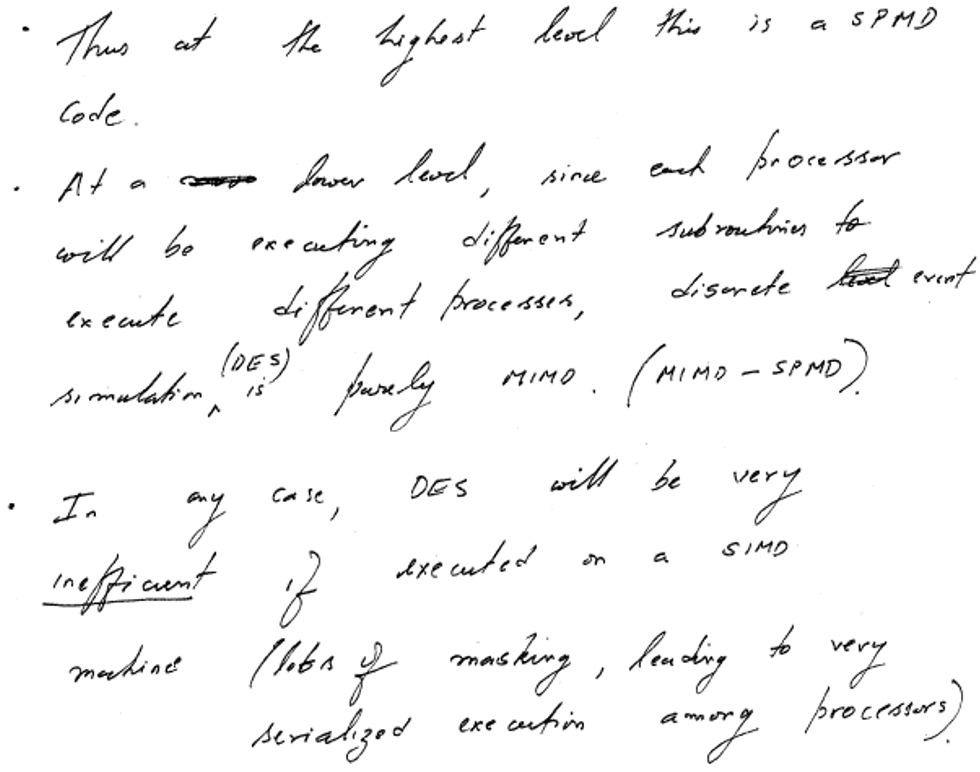 • Thus at the highest level this is a SPMD
code.
• At a lower level, since each processor
will be executing different subroutines to
execute different processes, discrete event
simulation, (DES) is purely MIMD. (MIMD - SPMD).
• In any case, DES will be very
inefficient if executed on a SIMD
machine (lots of masking, leading to very
serialized execution among processors).